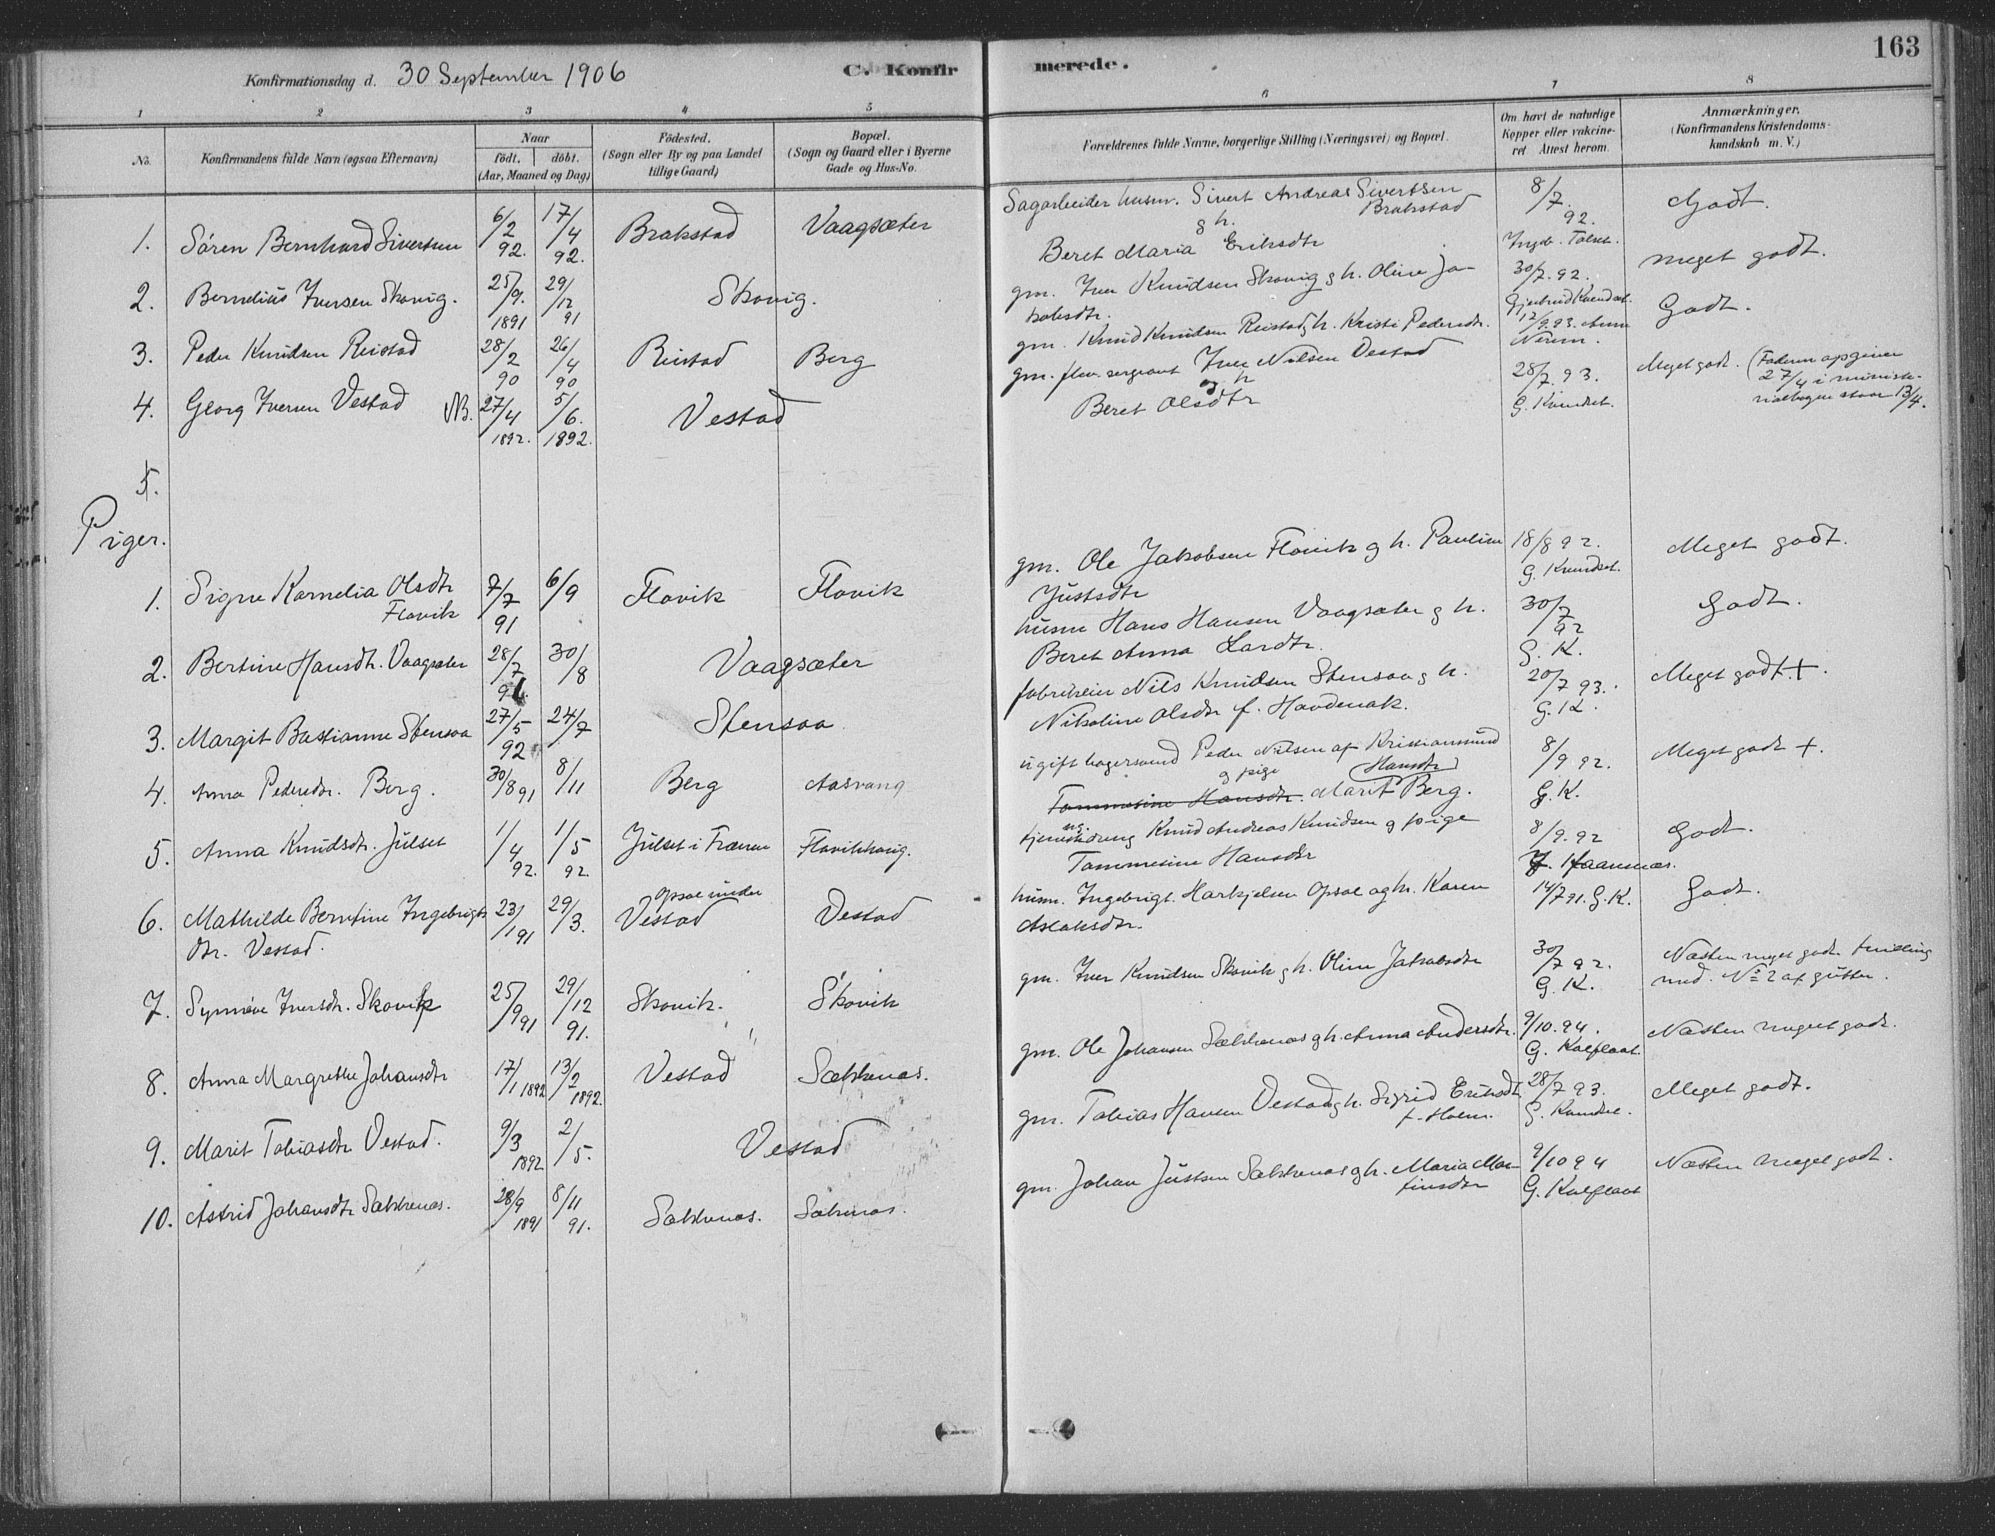 163
Konfirmationsdag d. 30 September 1906
C. Konfirmerede.
1 2 3 4 5 6 7 8
No.
Konfirmandens fulde Navn (ogsaa Efternavn)
Naar
födt. döbt.
(Aar, Maaned og Dag)
Födested.
(Sogn eller By og paa Landet
tillige Gaard)
Bopæl.
(Sogn og Gaard eller i Byerne
Gade og Hus-No.
Forældrenes fulde Navne, borgerlige Stilling (Næringsvei) og Bopæl.
Om havt de naturlige
Kopper eller vakcine-
ret Attest herom.
Anmærkninger,
(Konfirmandens Kristendoms-
kundskab m. V.)
1. Sören Bernhard Sivertsen 6/2 92. 17/4 92. Brakstad Vaagsæter
Sagarbeider husm. Sivert Andreas Sivertsen
Brakstad
g h.
Beret Maria Eriksdtr
8/7 92.
Godt.
2. Bernelius Iversen Skovig. 25/9. 1891 29/12 91 Skovig.
gm. Iver Knudsen Skovig g h. Oline Ja-
kobsdtr.
30/7. 92.
meget godt.
3. Peder Knudsen Reistad 28/2 90 26/4 90 Reistad Berg
gm. Knud Knudsen Reistad g h. Kristi Pedersdtr.
12/9 93. Anne
Nerem.
Godt.
4. Georg Iversen Vestad NB. 27/4 1892. 5/6. 1892. Vestad
gm. flev. sergeant Iver Nilsen Vestad
g. h
Beret Olsdtr
28/7. 93.
G. Kvendset.
Meget godt. (Faderen opgiver
27/4 i ministe-
rialbogen staar 13/4.
5.
Piger.
1. Signe Kornelia Olsdtr
Flovik 7/7 91 6/9 Flovik Flovik
gm. Ole Jakobsen Flovik g h. Pauline
Justsdtr
18/8 92.
G. Kvendset.
Meget godt.
2. Bertine Hansdtr. Vaagsæter 28/7 91. 30/8 Vaagsæter
husm Hans Hansen Vaagsæter g h.
Beret Anna Larsdtr.
30/7 92
G. K.
Godt.
3. Margit Bastianne Stensaa 27/5 92 24/7 Stensaa
Nils Knudsen Stensaa g h.
Nikoline Olsdtr f. Havdenak.
20/7 93.
G. K.
Meget godt. +.
4. Anna Pedersdtr. Berg. 30/8 91 8/11 Berg Aasvang
ugift bagersvend Peder Nilsen af Kristiansund
og pige Hansdtr
Tommesine Hansdtr. Marit Berg.
8/9 92.
G. K.
Meget godt +.
5. Anna Knudsdtr. Julset 1/4 92. 1/5 92. Julset i Frænen Flovikhaug.
ug.
tjenestdreng Knud Andreas Knudsen g pige
Tommesine Hansdtr
8/9. 92
Godt.
6. Mathilde Berntine Ingebrigts
dtr. Vestad. 23/1 91 29/3. Opsal under
Vestad Vestad
husm. Ingebrigt Opsal og h. Karen
Aslaksdtr.
14/7 91. G. K.
Godt.
7. Synnöve Iversdtr. Skovik 25/9 91 29/12 91. Skovik. Skovik
gm. Iver Knudsen Skovik g h. Oline Jakobsdtr
30/7 92.
G. K.
Næsten meget godt. tvilling
med No 2 af gutter.
8. Anna Margrethe Johansdtr 17/1 1892 13/2 1892. Vestad Sækkenæs.
gm. Ole Johansen Sækkenæs g h. Anna Andersdtr.
9/10. 94.
G. Kalflaat.
Næsten meget godt.
9. Marit Tobiasdtr Vestad. 9/3 1892 2/5. Vestad
gm. Tobias Hansen Vestad g h. Sigrid Eriksdtr
f. Holm.
28/7 93.
G. Kvendset.
Meget godt.
10. Astrid Johansdtr Sækkenæs. 28/9 1891 8/11 91. Sækkenæs. Sækenæs.
gm. Johan Justsen Sækkenæs g h. Maria Mar-
tinsdtr
9/10 94
G. Kalflaat
Næsten meget godt.